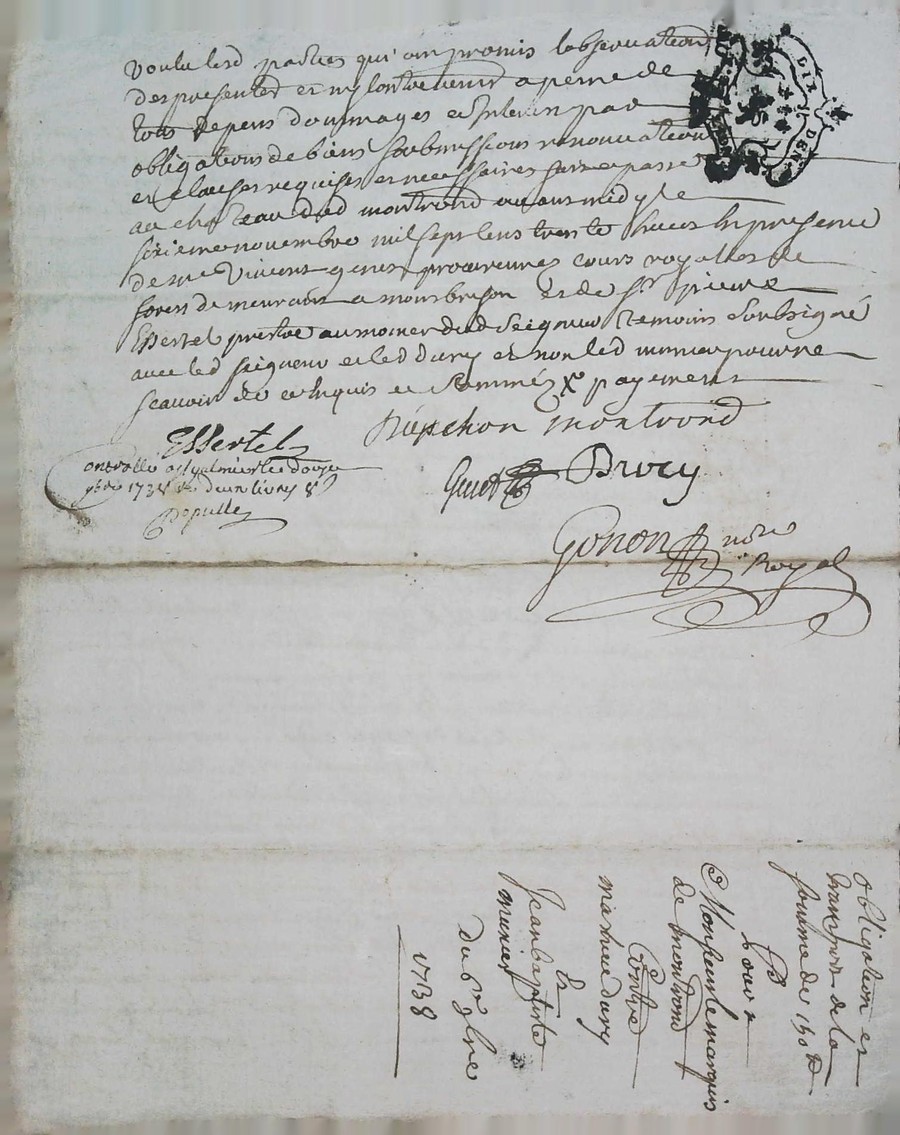 voulu lesd parties qui ont promis lobservation
des presentes et ny contrevenir a peine de
tous depens dommages et interets par
obligations de biens soubmissions renonciations
et clauses requises et necessaires fait et passé
au chateau dud montrond avant midy le
sixieme novembre mil sept cens trente huict en presence
de me Vincent procureur es cours royalles de
forest demeurant a montbrison et de sr pierre
Essertel prestre aumonier dud Seigneur temoins soubsigné
avec led seigneur et led Dury et non led murier pour ne
scavoir de ce enquis et sommés payement
Essertel
montrond
Dury
9bre 1738
Gonon nore
Royal
obligation et
de la
somme de 150 tt
Pour
Monsieur le marquis
de montrond
Contre
mathieu dury
&
Jean baptiste
murier
Du 6e 9bre
1738
DEN